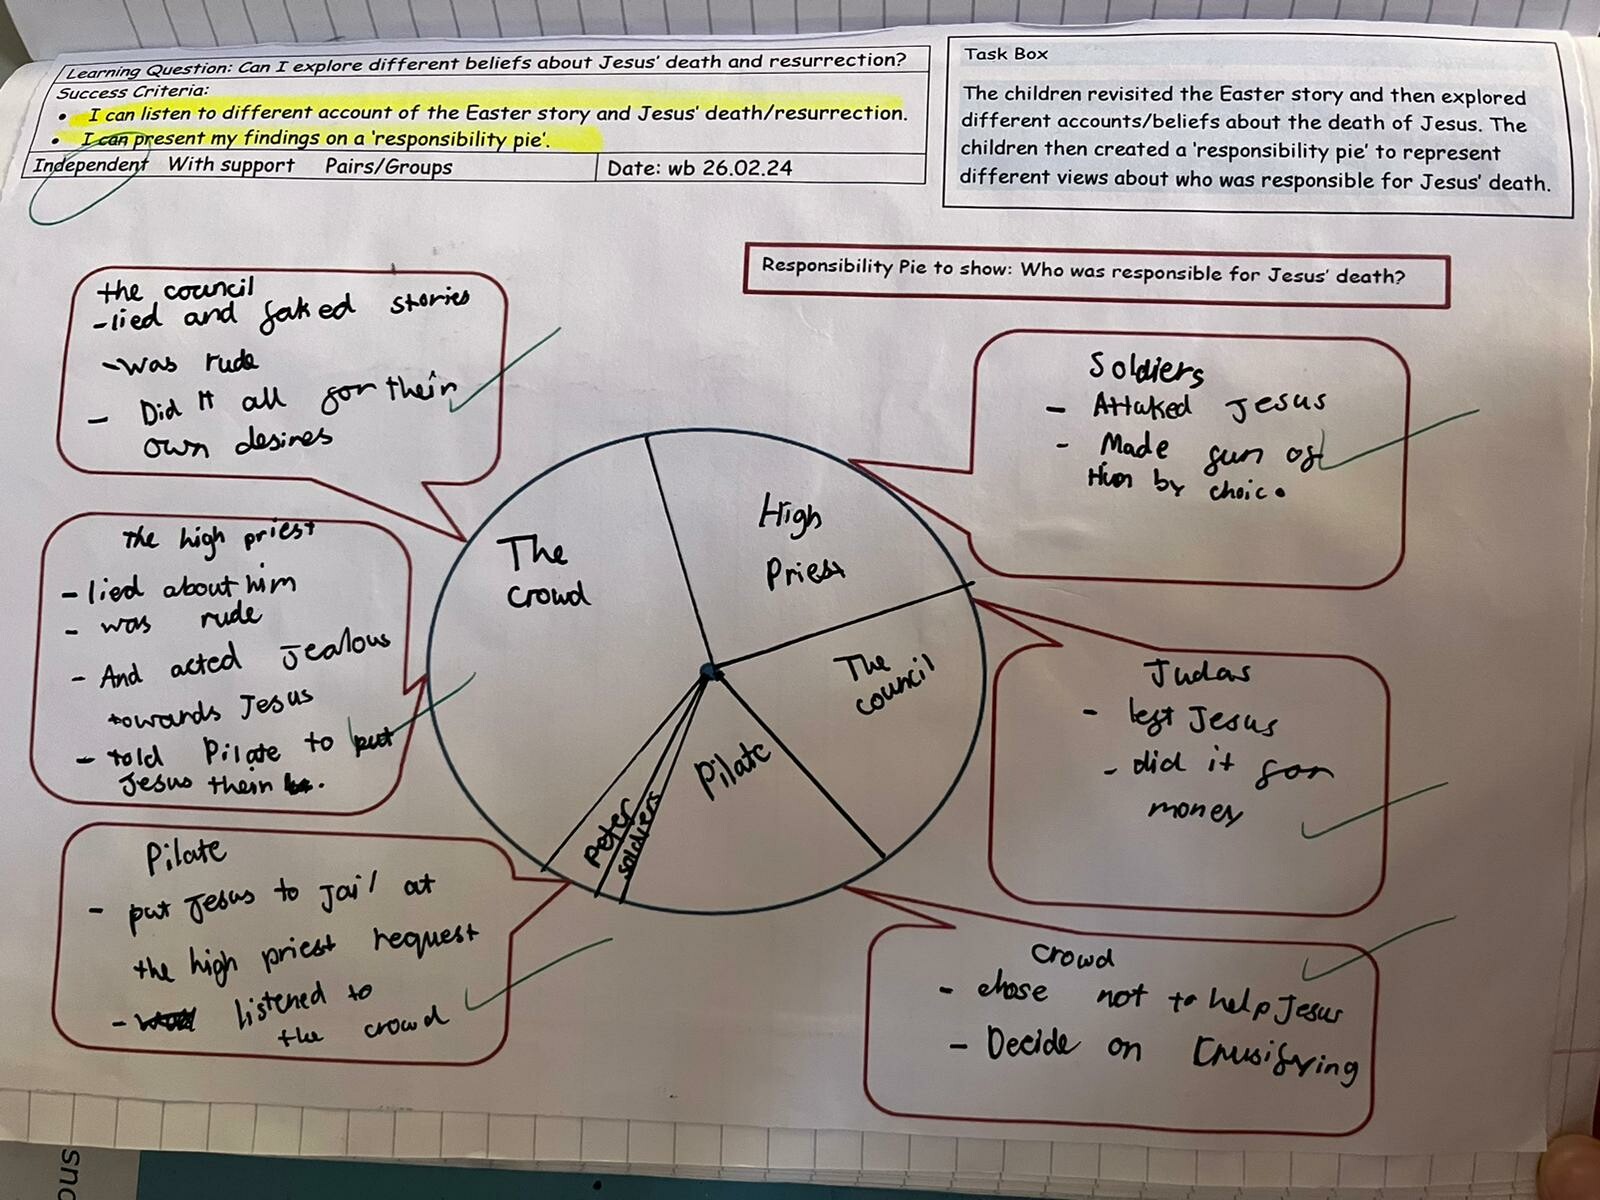 Learning Question: Can I explore different beliefs about Jesus' death and resurrection?
Success Criteria:
• I can listen to different account of the Easter story and Jesus' death/resurrection.
• I can present my findings on a 'responsibility pie'.
Independent With support Pairs/Groups
Date: wb 26.02.24
Task Box
The children revisited the Easter story and then explored
different accounts/beliefs about the death of Jesus. The
children then created a 'responsibility pie' to represent
different views about who was responsible for Jesus' death.
Responsibility Pie to show: Who was responsible for Jesus' death?
the council
-lied and faked stories
-was rude
- Did it all for their
own desires
the high priest
- lied about him
- was rude
- And acted Jealous
towards Jesus
- told Pilate to put
Jesus their
Pilate
- put Jesus to Jail at
the high priest request
- listened to
the crowd
The
crowd
High
Priest
The
council
Pilate
Peter
soldiers
Soldiers
- Attaked Jesus
- Made fun of
Him by choice
Judas
- left Jesus
- did it for
money
Crowd
- chose not to help Jesus
- Decide on Crusifying